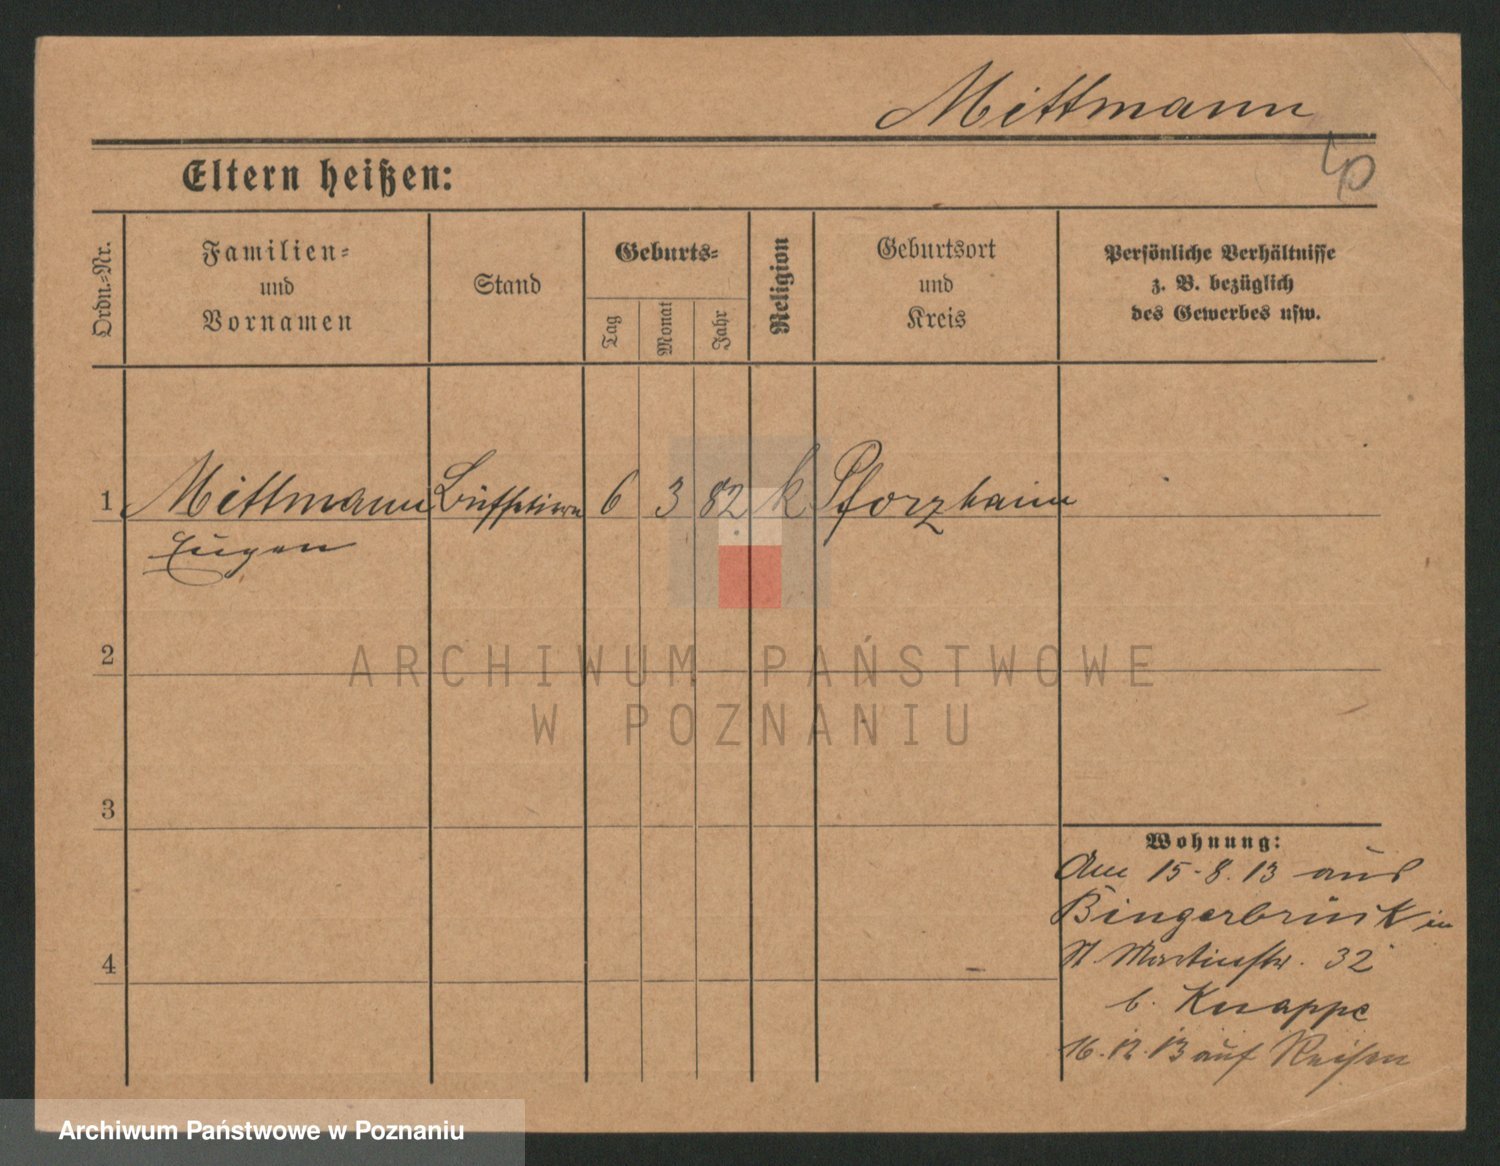 Mittmann
Eltern heißen:
Ordn.=Nr.
Familien=
und
Vornamen
Stand
Geburts=
Tag
Monat
Jahr
Religion
Geburtsort
und
Kreis
Persönliche Verhältnisse
z. B. bezüglich
des Gewerbes usw.
1 Mittmann 6 3 82 k Pforzheim
Eugen
2
3
4
Wohnung:
Am 15-8.13 aus
Bingerbrück in
St Martinstr. 32
b. Knappe
16.12.13 auf Reisen
ARCHIWUM PAŃSTWOWE
W POZNANIU
Archiwum Państwowe w Poznaniu